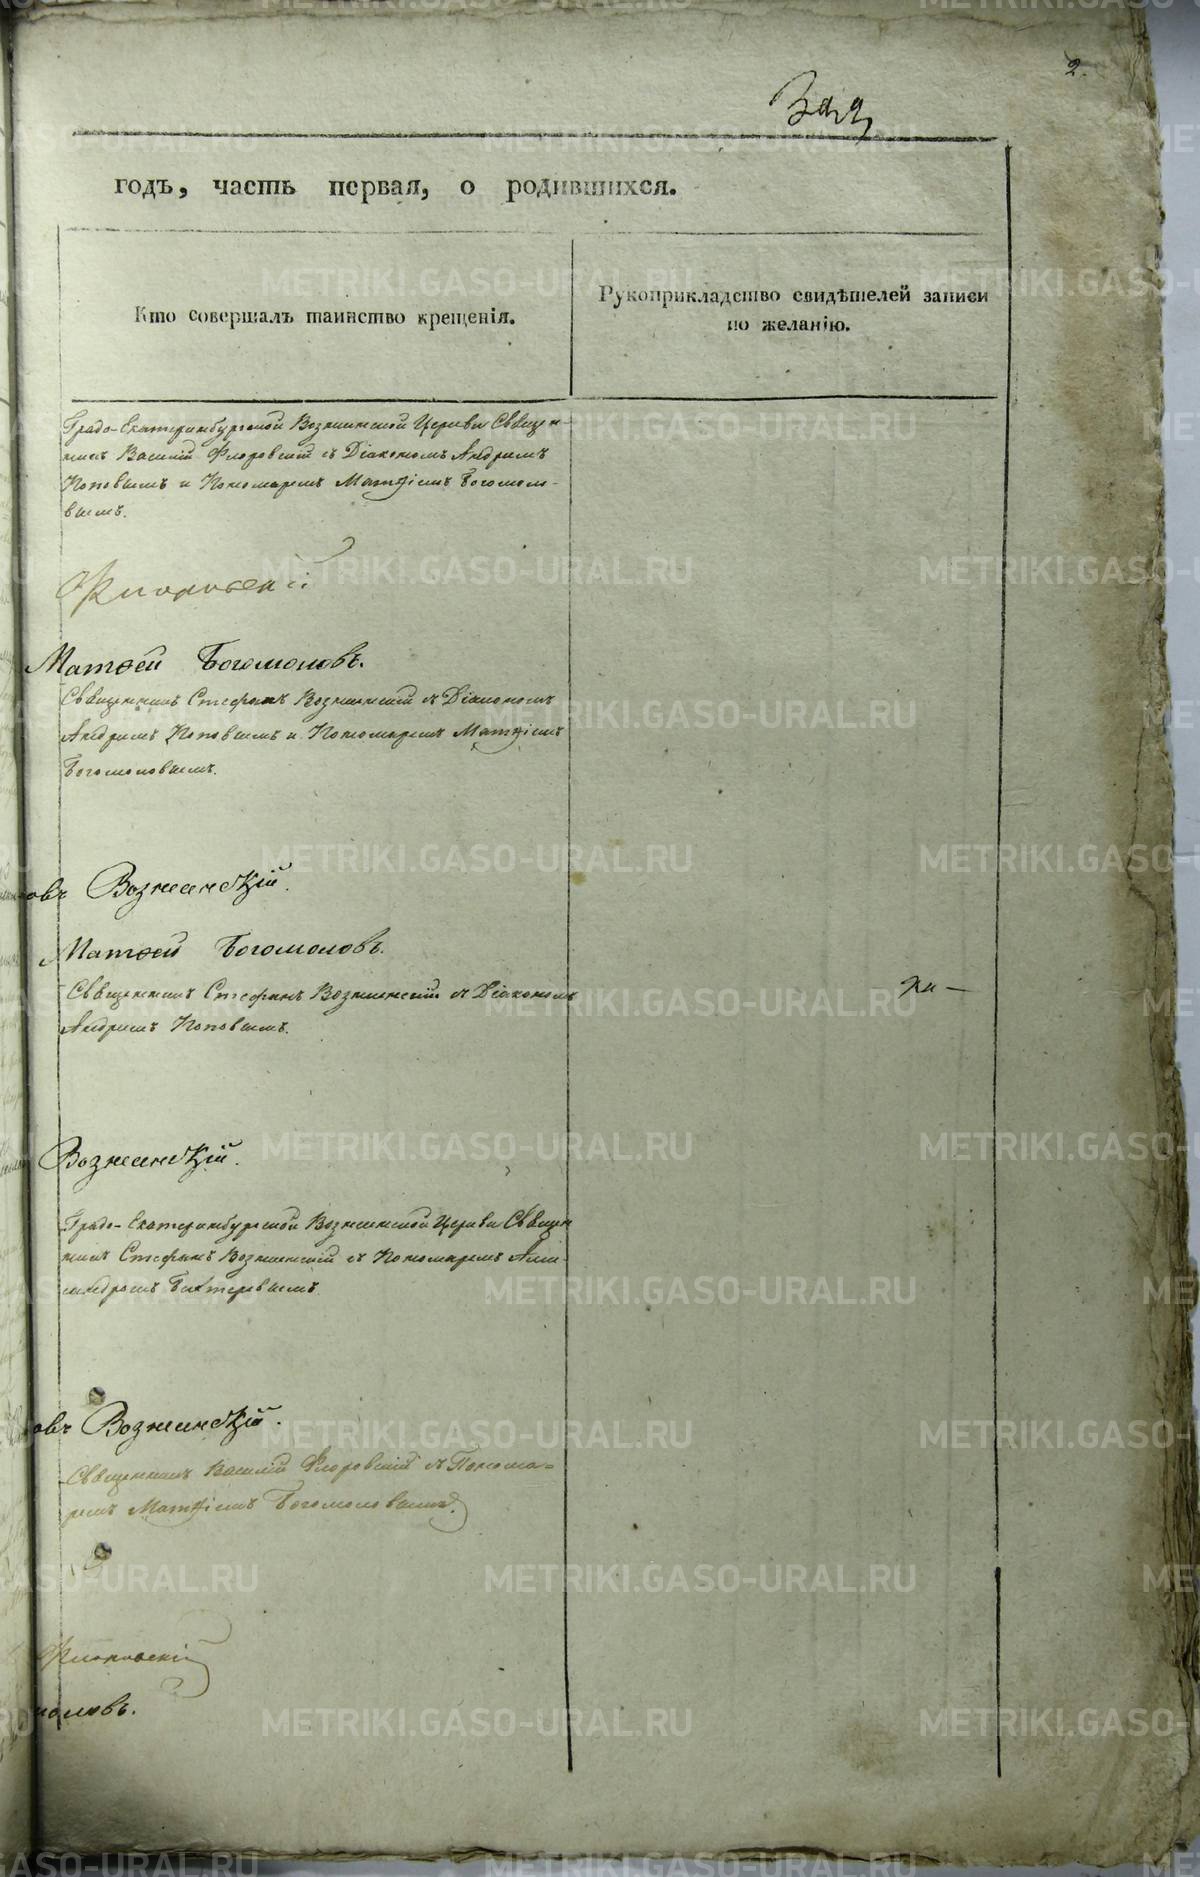 2.
годъ, часть первая, о родившихся.
Кто совершалъ таинство крещенія.
Рукоприкладство свидѣтелей записи
по желанію.
Градо-Екатеринбургской Вознесенской Церкви Священ-
никъ Василій Флоровскій съ Діакономъ Андреемъ
Поповымъ и Пономаремъ Матѳіемъ Богомоло-
вымъ.
Флоровскій
Матѳей Богомоловъ.
Священникъ Стефанъ Вознесенскій съ Діакономъ
Андреемъ Поповымъ и Пономаремъ Матѳіемъ
Богомоловымъ.
овъ Вознесенскій.
Матѳей Богомоловъ.
Священникъ Стефанъ Вознесенскій съ Діакономъ
Андреемъ Поповымъ.
Вознесенскій.
Градо-Екатеринбургской Вознесенской Церкви Священ
никъ Стефанъ Вознесенскій съ Пономаремъ Алек-
сандромъ
овъ Вознесенскій.
Священникъ Василій Флоровскій съ Понома-
ремъ Матѳіемъ Богомоловымъ.
Флоровскій
моловъ.
METRIKI.GASO-URAL.RU